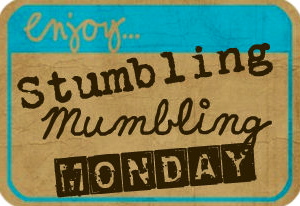 enjoy...
Stumbling
Mumbling
MONDAY